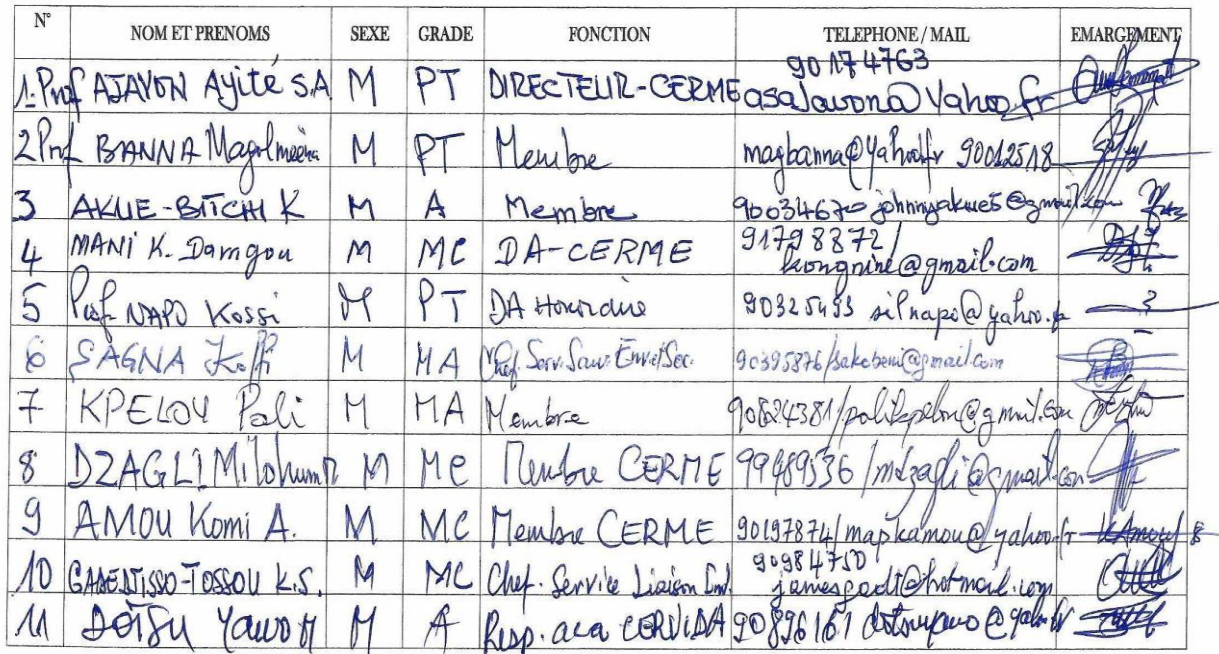 N° NOM ET PRENOMS SEXE GRADE FONCTION TELEPHONE / MAIL EMARGEMENT
1. Prof AJAVON Ayité S.A M PT DIRECTEUR-CERME 90174763 asajavona@yahoo.fr
2 Prof BANNA M PT Membre magbanna@yahoo.fr 90012518
3 AKUE-BITCHI K M A Membre 90034670 johnnyakue5@gmail.com
4 MANI K. Damgou M MC DA-CERME 91798872/ kongnine@gmail.com
5 Prof. NAPO Kossi M PT DA Honoraire 90325493 silnapo@yahoo.fr
6 SAGNA Koffi M MA Chef Serv. Sauv. Env et Sec. 90395876/sakobeni@gmail.com
7 KPELOU Pali M MA Membre 90824381/palikpelou@gmail.com
8 DZAGLI M MC Membre CERME 99489536/mdzagli@gmail.com
9 AMOU Komi A. M MC Membre CERME 90197874/mapkamou@yahoo.fr
10 M MC Chef. Service Liaison Ind. 90984750
11 M A Resp. aca CERViDA 90896161